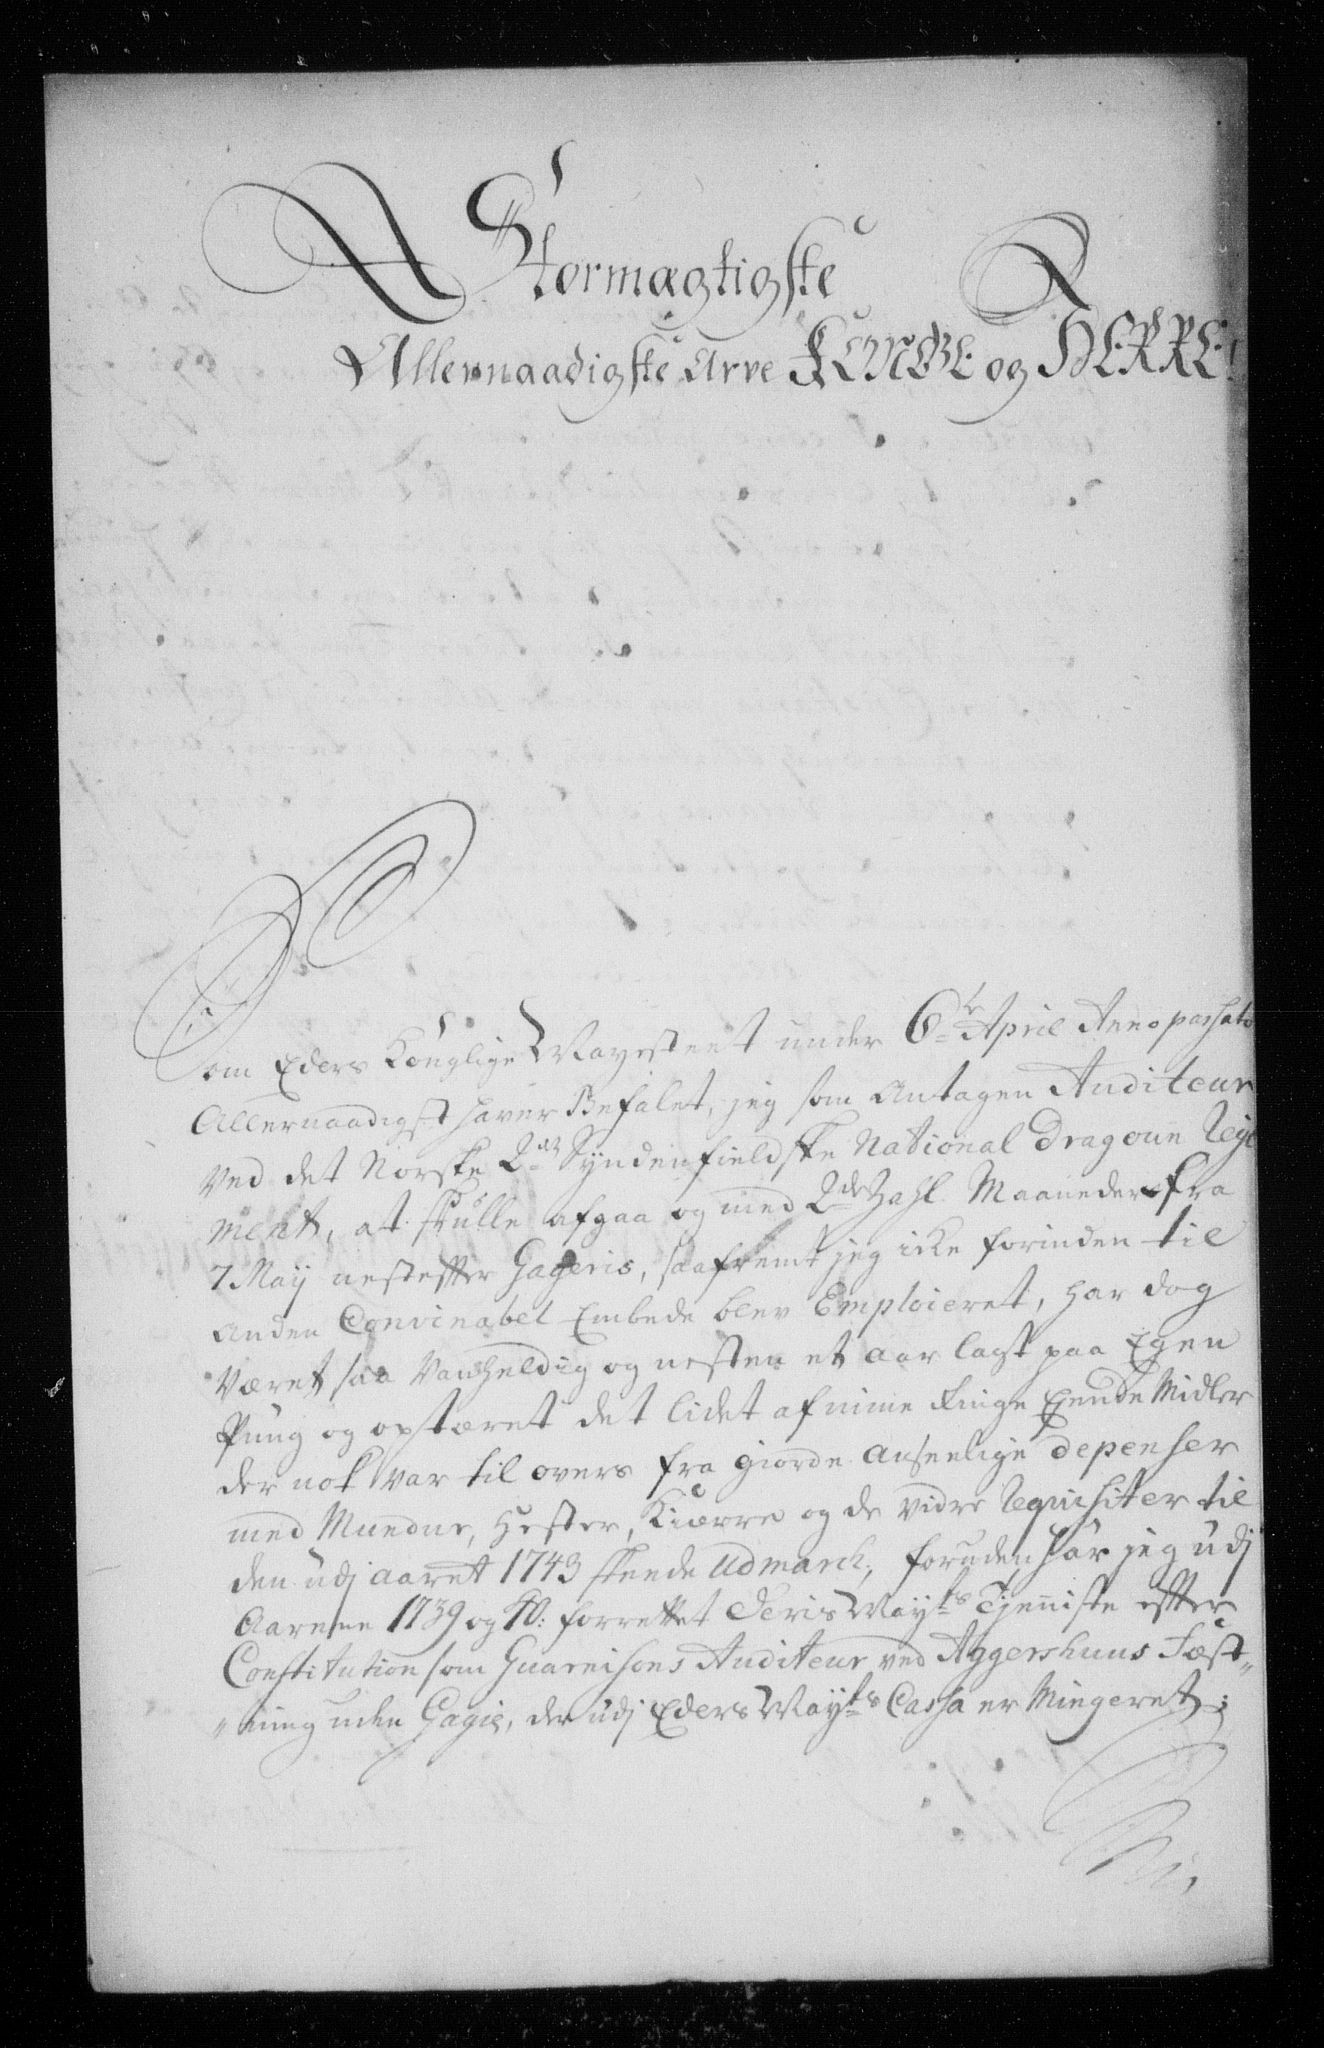 Stormægtigste
Allernaadigste Arve KONGE og HERRE!
Som Eders Konglige Mayesteet under 6te April Anno passato
Allernaadigst haver Befalet, jeg som Antagen Auditeur
ved det Norske 2det Syndenfieldske National Dragoun Regi
ment, at skulle afgaa og med 2de Zahl Maaneder fra
7 May nestefter Gageris, saafremt jeg icke forinden til
anden Convinabel Embede blev Emploieret, har dog
været saa Vanheldig og nesten et aar lagt paa Egen
Pung og optæret det lidet af mine Ringe Eyende Midler
der nok var til overs fra giorde anseelige depenser
med Mundur, Hester, Kiærre og de vidre Requisiter til
den udj aaret 1743 skeede Udmarch, foruden har jeg udj
Aarene 1739 og 40: forrettet Deris Mayts Tjeniste efter
Constitution som Guarnisons Auditeur ved Aggershuus Fæst„
„ning uden Gagie, der udj Eders Mayts Cassa er Mingeret;